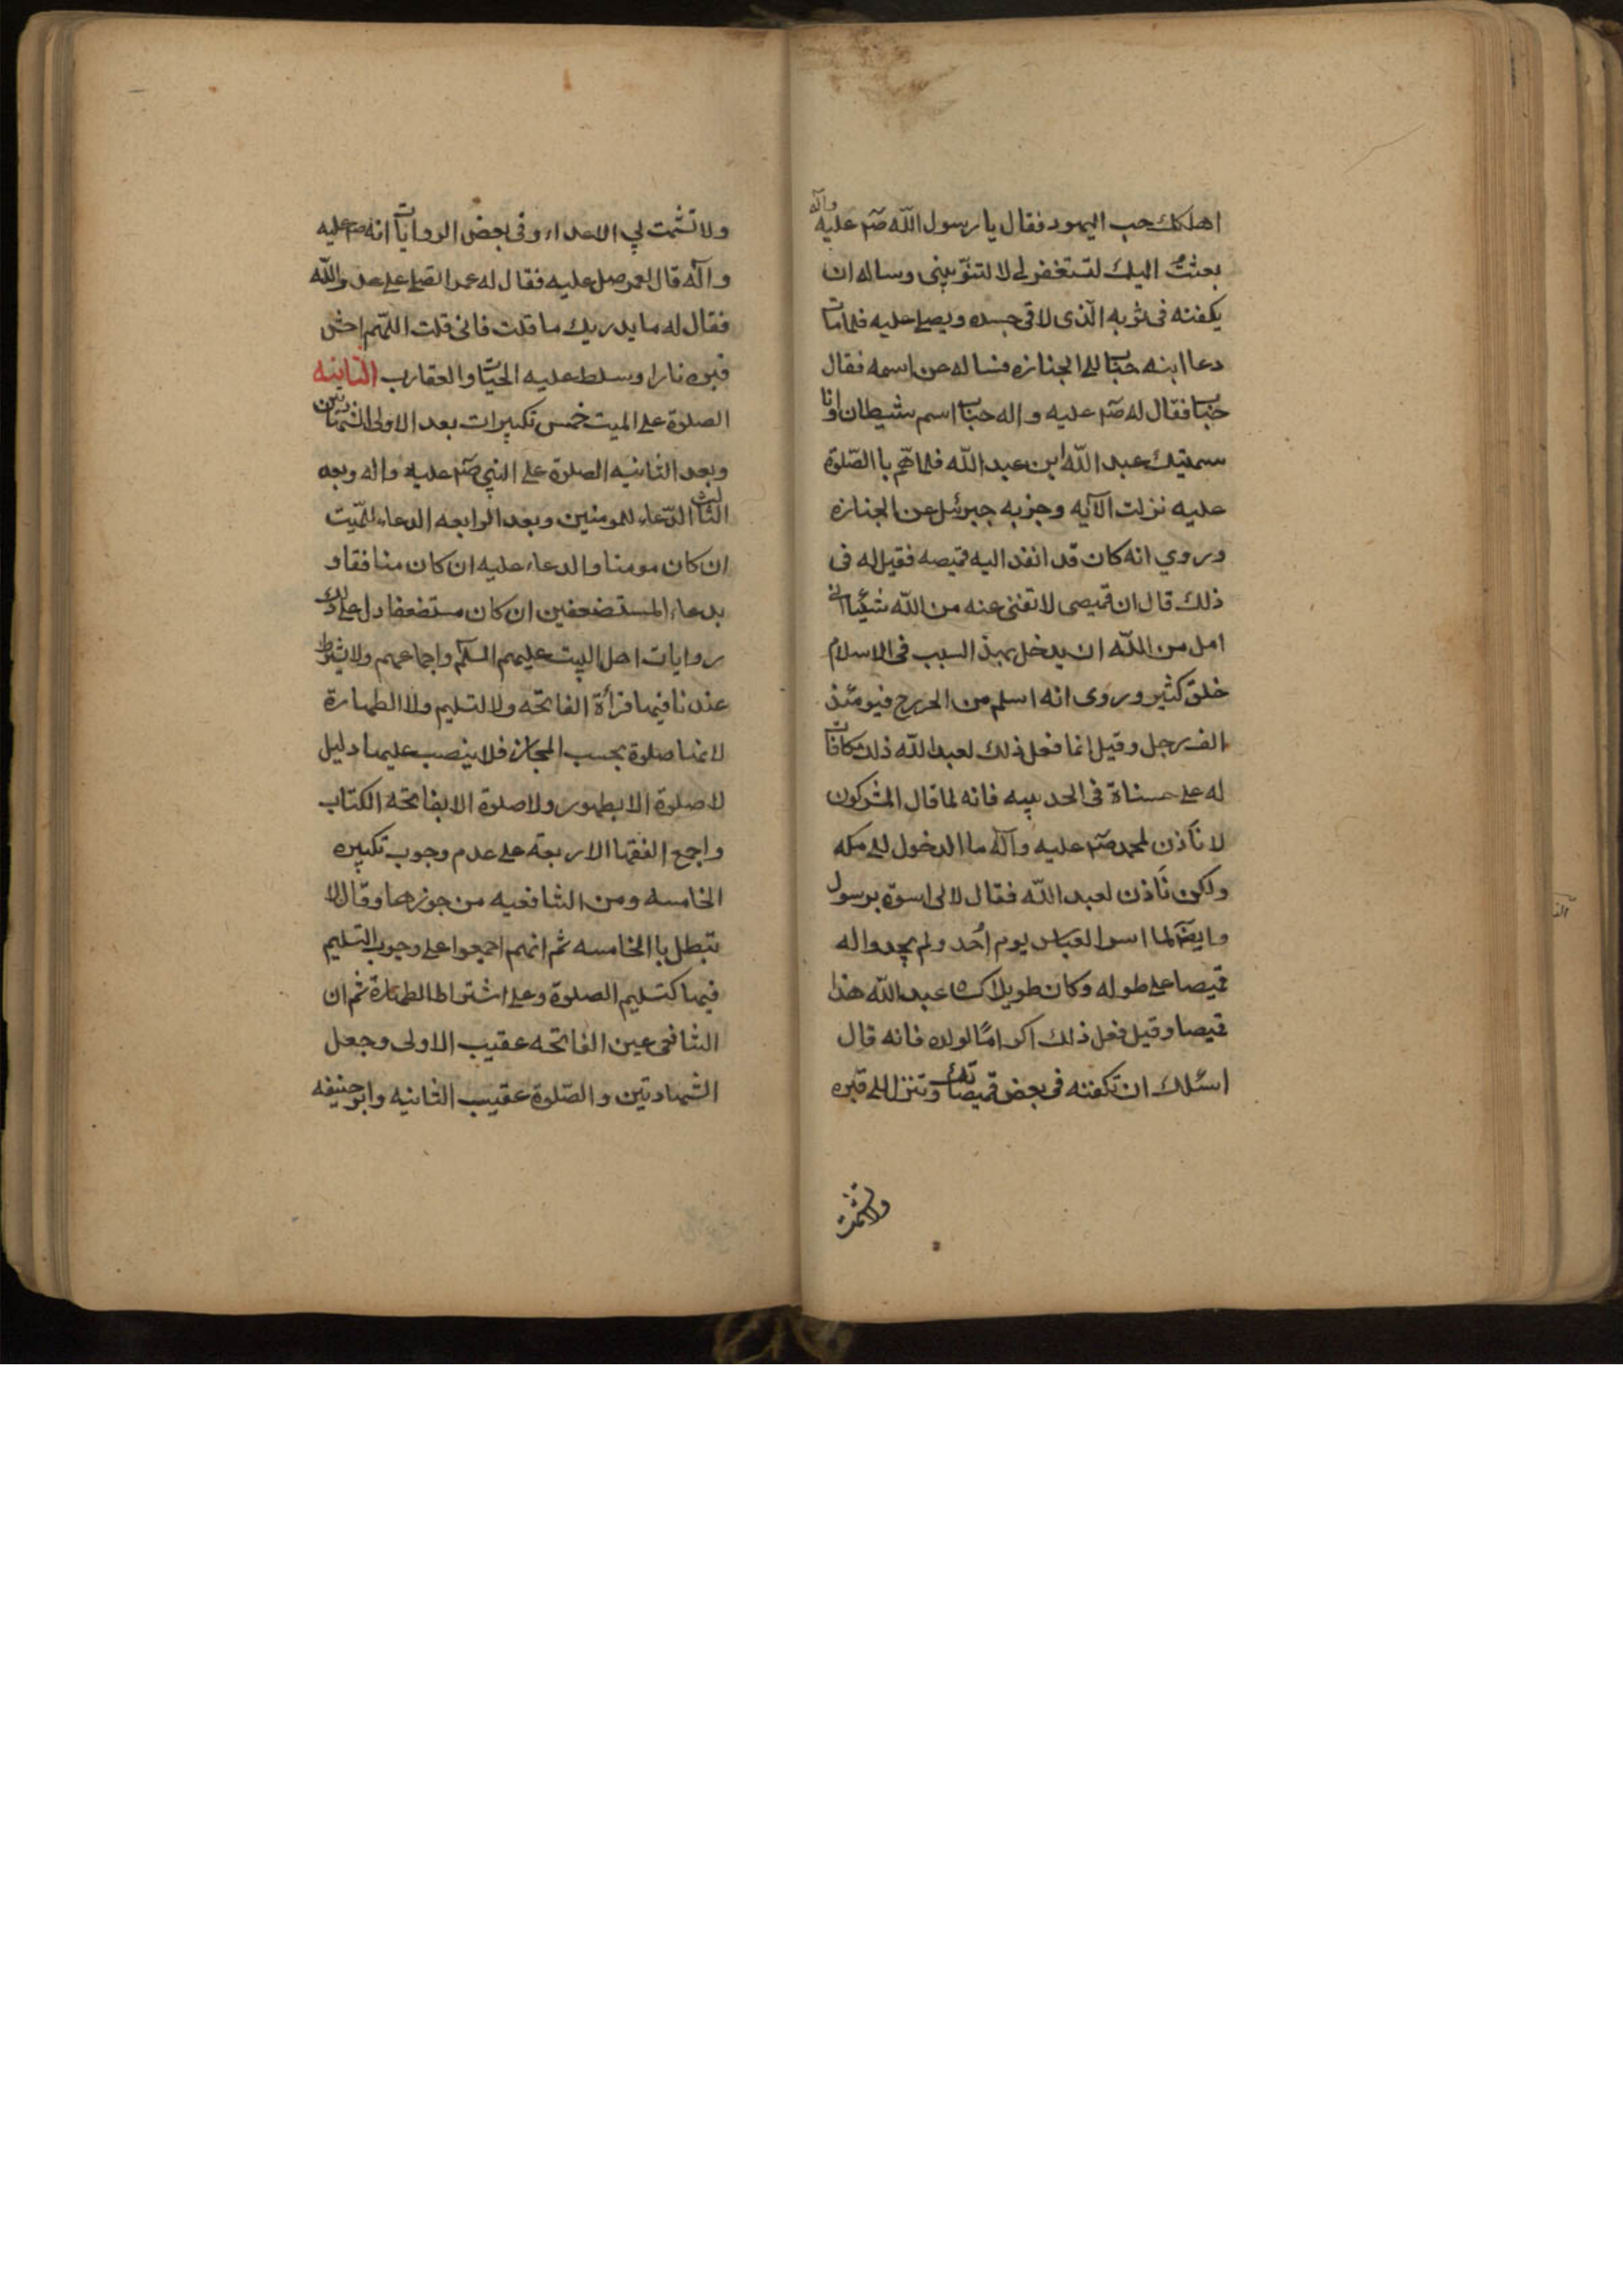 اهلكك حب اليهود فقال يا رسول اللّه صم عليه وآله
بعثتُ اليك لتستغفر لى لا لتنوّبينى وساله ان
يكفنه فى ثوبه الّذى لاقى جسده ويصلى عليه فلمامات
دعاابنه حباب الى الجنازه فساله عن اسمه فقال
حباب فقال له صم عليه و اله حباب اسم شيطان وانا
سميتك عبد اللّه ابن عبد اللّه فلماهّم باالصّلوة
عليه نزلت الآيه وجزبه جبرئل عن الجنازه
وروي انه كان قد انفد اليه قميصه فقيل له فى
ذلك قال ان قميصى لاتغنى عنه من اللّه شيئا انى
امل من اللّه ان يدخل بهذ السبب فى الاسلام
خلق كثير وروى انه اسلم من الخزرج فيومئذ
الف رجل وقيل انما فعل ذلك لعبد اللّه ذلك مكافات
له على حسناة فى الحديبيه فانه لما قال المشركون
لا نأذن لمحمد صم عليه وآله ما الدخول الى مكه
ولكن نأذن لعبد اللّه فقال لا لى اسوة برسول
وايضآ لما اسر العباس يوم اُحد ولم يجدوا له
قميصا على طوله وكان طويلا كساه عبد اللّه هذا
قميصا وقيل فعل ذلك اكرامًا لولده فانه قال
اسئلك ان تكفنه فى بعض قميصاتك وتنزل الى قبره
ولاتشمت
ولا تشمت بي الاعداء وفى بعض الروايات انه صم عليه
وآله قال لعمر صل عليه فقال له عمر اتصلى على عدو اللّه
فقال له مايدريك ماقلت فانى قلت اللّهم احش
قبره نارا وسلط عليه الحيّات والعقارب الثانيه
الصلوة على الميت خمس تكبيرات بعد الاولى الشهادتين
وبعد الثانيه الصلوة على النبي صم عليه واله وبعد
الثالث الدّعاء للمومنين وبعد الرابعه الدعاء للمّيت
ان كان مومنا والدعاء عليه ان كان منافقا و
بدعاء المستضعفين ان كان مستضعفا دل على ذلك
روايات اهل البيت عليهم السلم واجماعهم ولا يشترط
عندنا فيها قرأة الفاتحه ولا التسليم ولا الطهارة
لانها صلوة بحسب المجاز فلا ينصب عليها دليل
لا صلوة الا بطهور ولا صلوة الا بفاتحة الكتاب
واجمع الفقها الاربعة على عدم وجوب تكبيره
الخامسه ومن الشافعيه من جوزها وقال لا
تبطل باالخامسه ثم انهم اجمعوا على وجوب التسليم
فيها كتسليم الصلوة وعلى اشتراط الطهارة ثم ان
الشافى عين الفاتحه عقيب الاولى وجعل
الشهادتين والصّلوة عقيب الثانيه وابو حنيفه